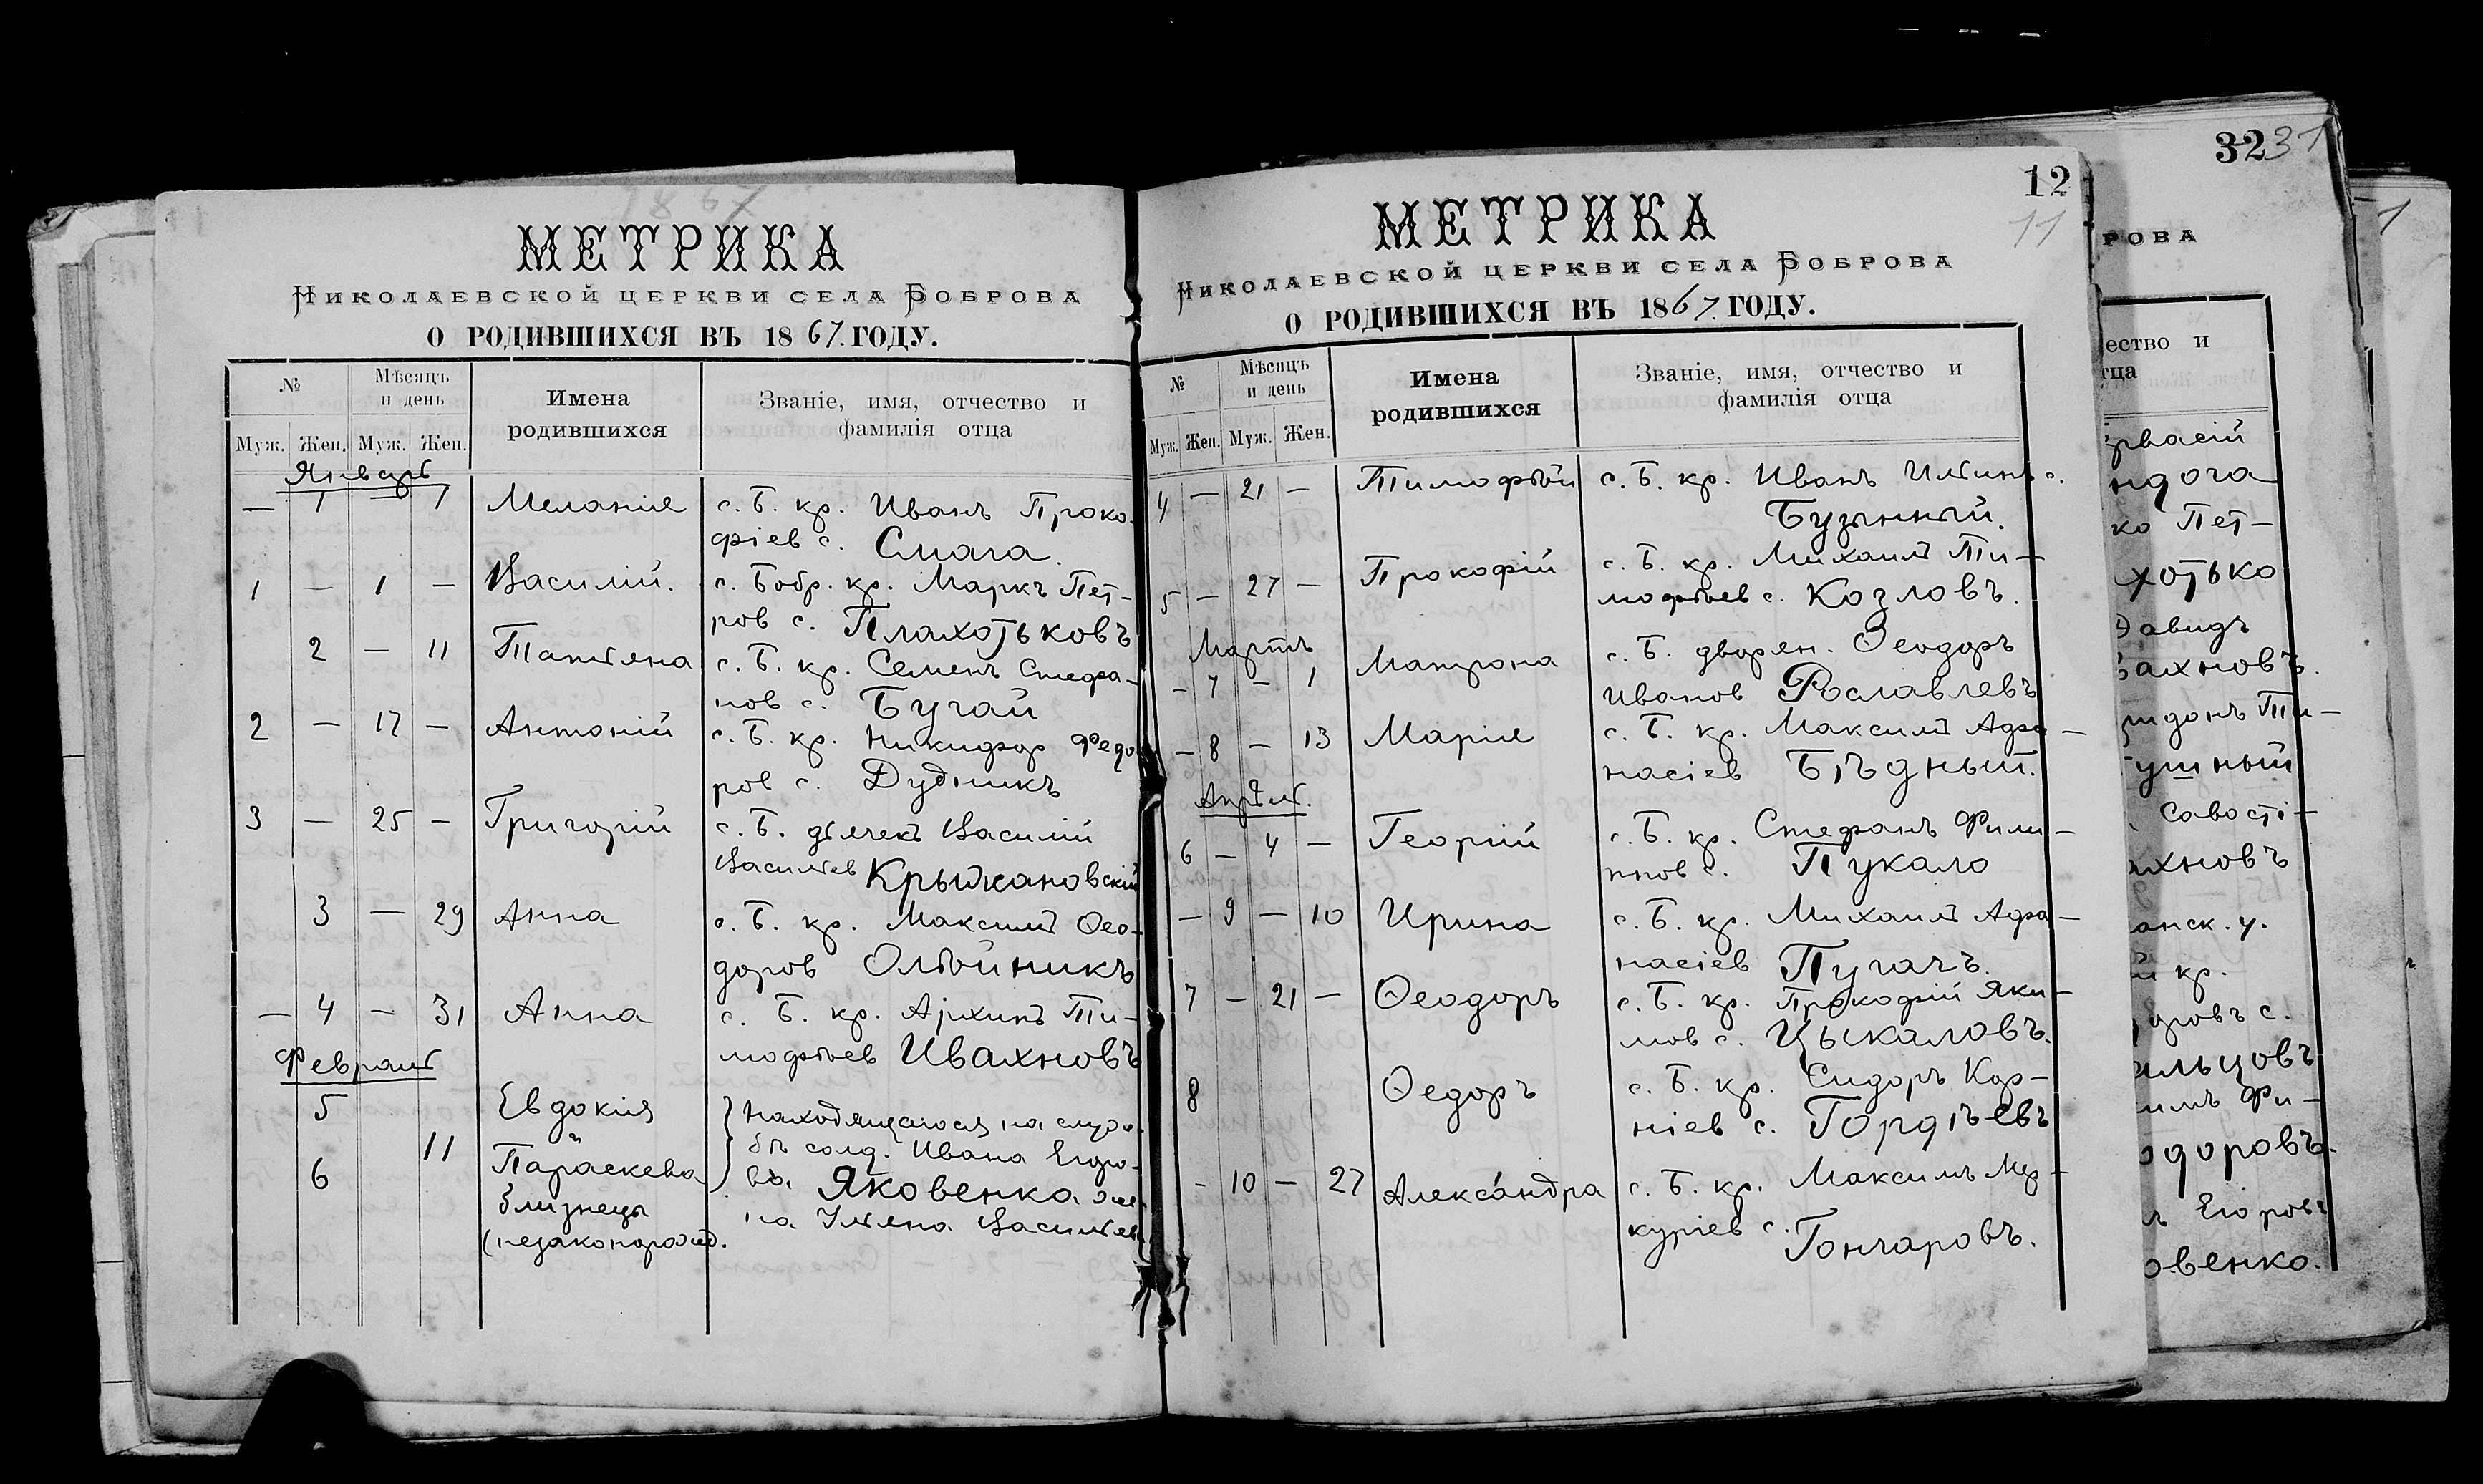 1867
МЕТРИКА
Николаевской церкви села Боброва
О РОДИВШИХСЯ ВЪ 1867. ГОДУ.
№ Мѣсяцъ и день Имена родившихся Званіе, имя, отчество и фамилія отца
Муж. Жен. Муж. Жен.
Январь
— 1 — 7 Меланія с. Б. кр. Иванъ Проко-
фіев с. Смага.
1 — 1 — Василій. с. Бобр. кр. Маркъ Пет-
ров с. Плахотьковъ
2 — 11 Татіяна с. Б. кр. Семенъ Стефа-
нов с. Бугай
2 — 17 — Антоній с. Б. кр. Никифор Федо
ров с. Дудникъ
3 — 25 — Григорій с. Б. дьячекъ Василій
Васильев Крыжановскій
3 — 29 Анна с. Б. кр. Максимъ Ѳео-
доров Олѣйникъ
— 4 — 31 Анна с. Б. кр. Архипъ Ти-
мофѣев Ивахновъ
Февраль
5 Евдокія находящагося на служ-
11 бѣ солд. Ивана Егоро-
6 Параскева ва Яковенка же-
близнецы на Ульяна Васильев
(незаконорожд.
12
11
МЕТРИКА
Николаевской церкви села Боброва
О РОДИВШИХСЯ ВЪ 1867. ГОДУ.
№ Мѣсяцъ и день Имена родившихся Званіе, имя, отчество и фамилія отца
Муж. Жен. Муж. Жен.
4 — 21 — Тимофѣй с. Б. кр. Иванъ Ильинъ с.
Бузынный.
5 — 27 — Прокофій с. Б. кр. Михаилъ Ти-
мофѣев с. Козловъ.
Мартъ
— 7 — 1 Матрона с. Б. дворян. Ѳеодоръ
Иванов Рославлевъ
— 8 — 13 Марія с. Б. кр. Максимъ Афа-
насіев Бѣдный.
Апрѣль.
6 — 4 — Георгій с. Б. кр. Стефанъ Фили-
ппов с. Пукало
— 9 — 10 Ирина с. Б. кр. Михаилъ Афа-
насіев Пугачъ.
7 — 21 — Ѳеодоръ с. Б. кр. Прокофій Яки-
мов с. Цыкаловъ.
8 Ѳедоръ с. Б. кр. Сидоръ Кор-
ніев с. Гордѣевъ
- 10 — 27 Александра с. Б. кр. Максимъ Мер-
куріев с.
Гончаровъ.
32
31
РОВА
ество и
тца
рвасій
ндога
ко Пет-
хотько
Давидъ
вахновъ.
ридонъ Ти-
ушный
Савості-
ихновъ
анск. у.
й кр.
доровъ с.
альцовъ
имъ Фи-
одоровъ.
ъ Егоровъ
овенко.
1